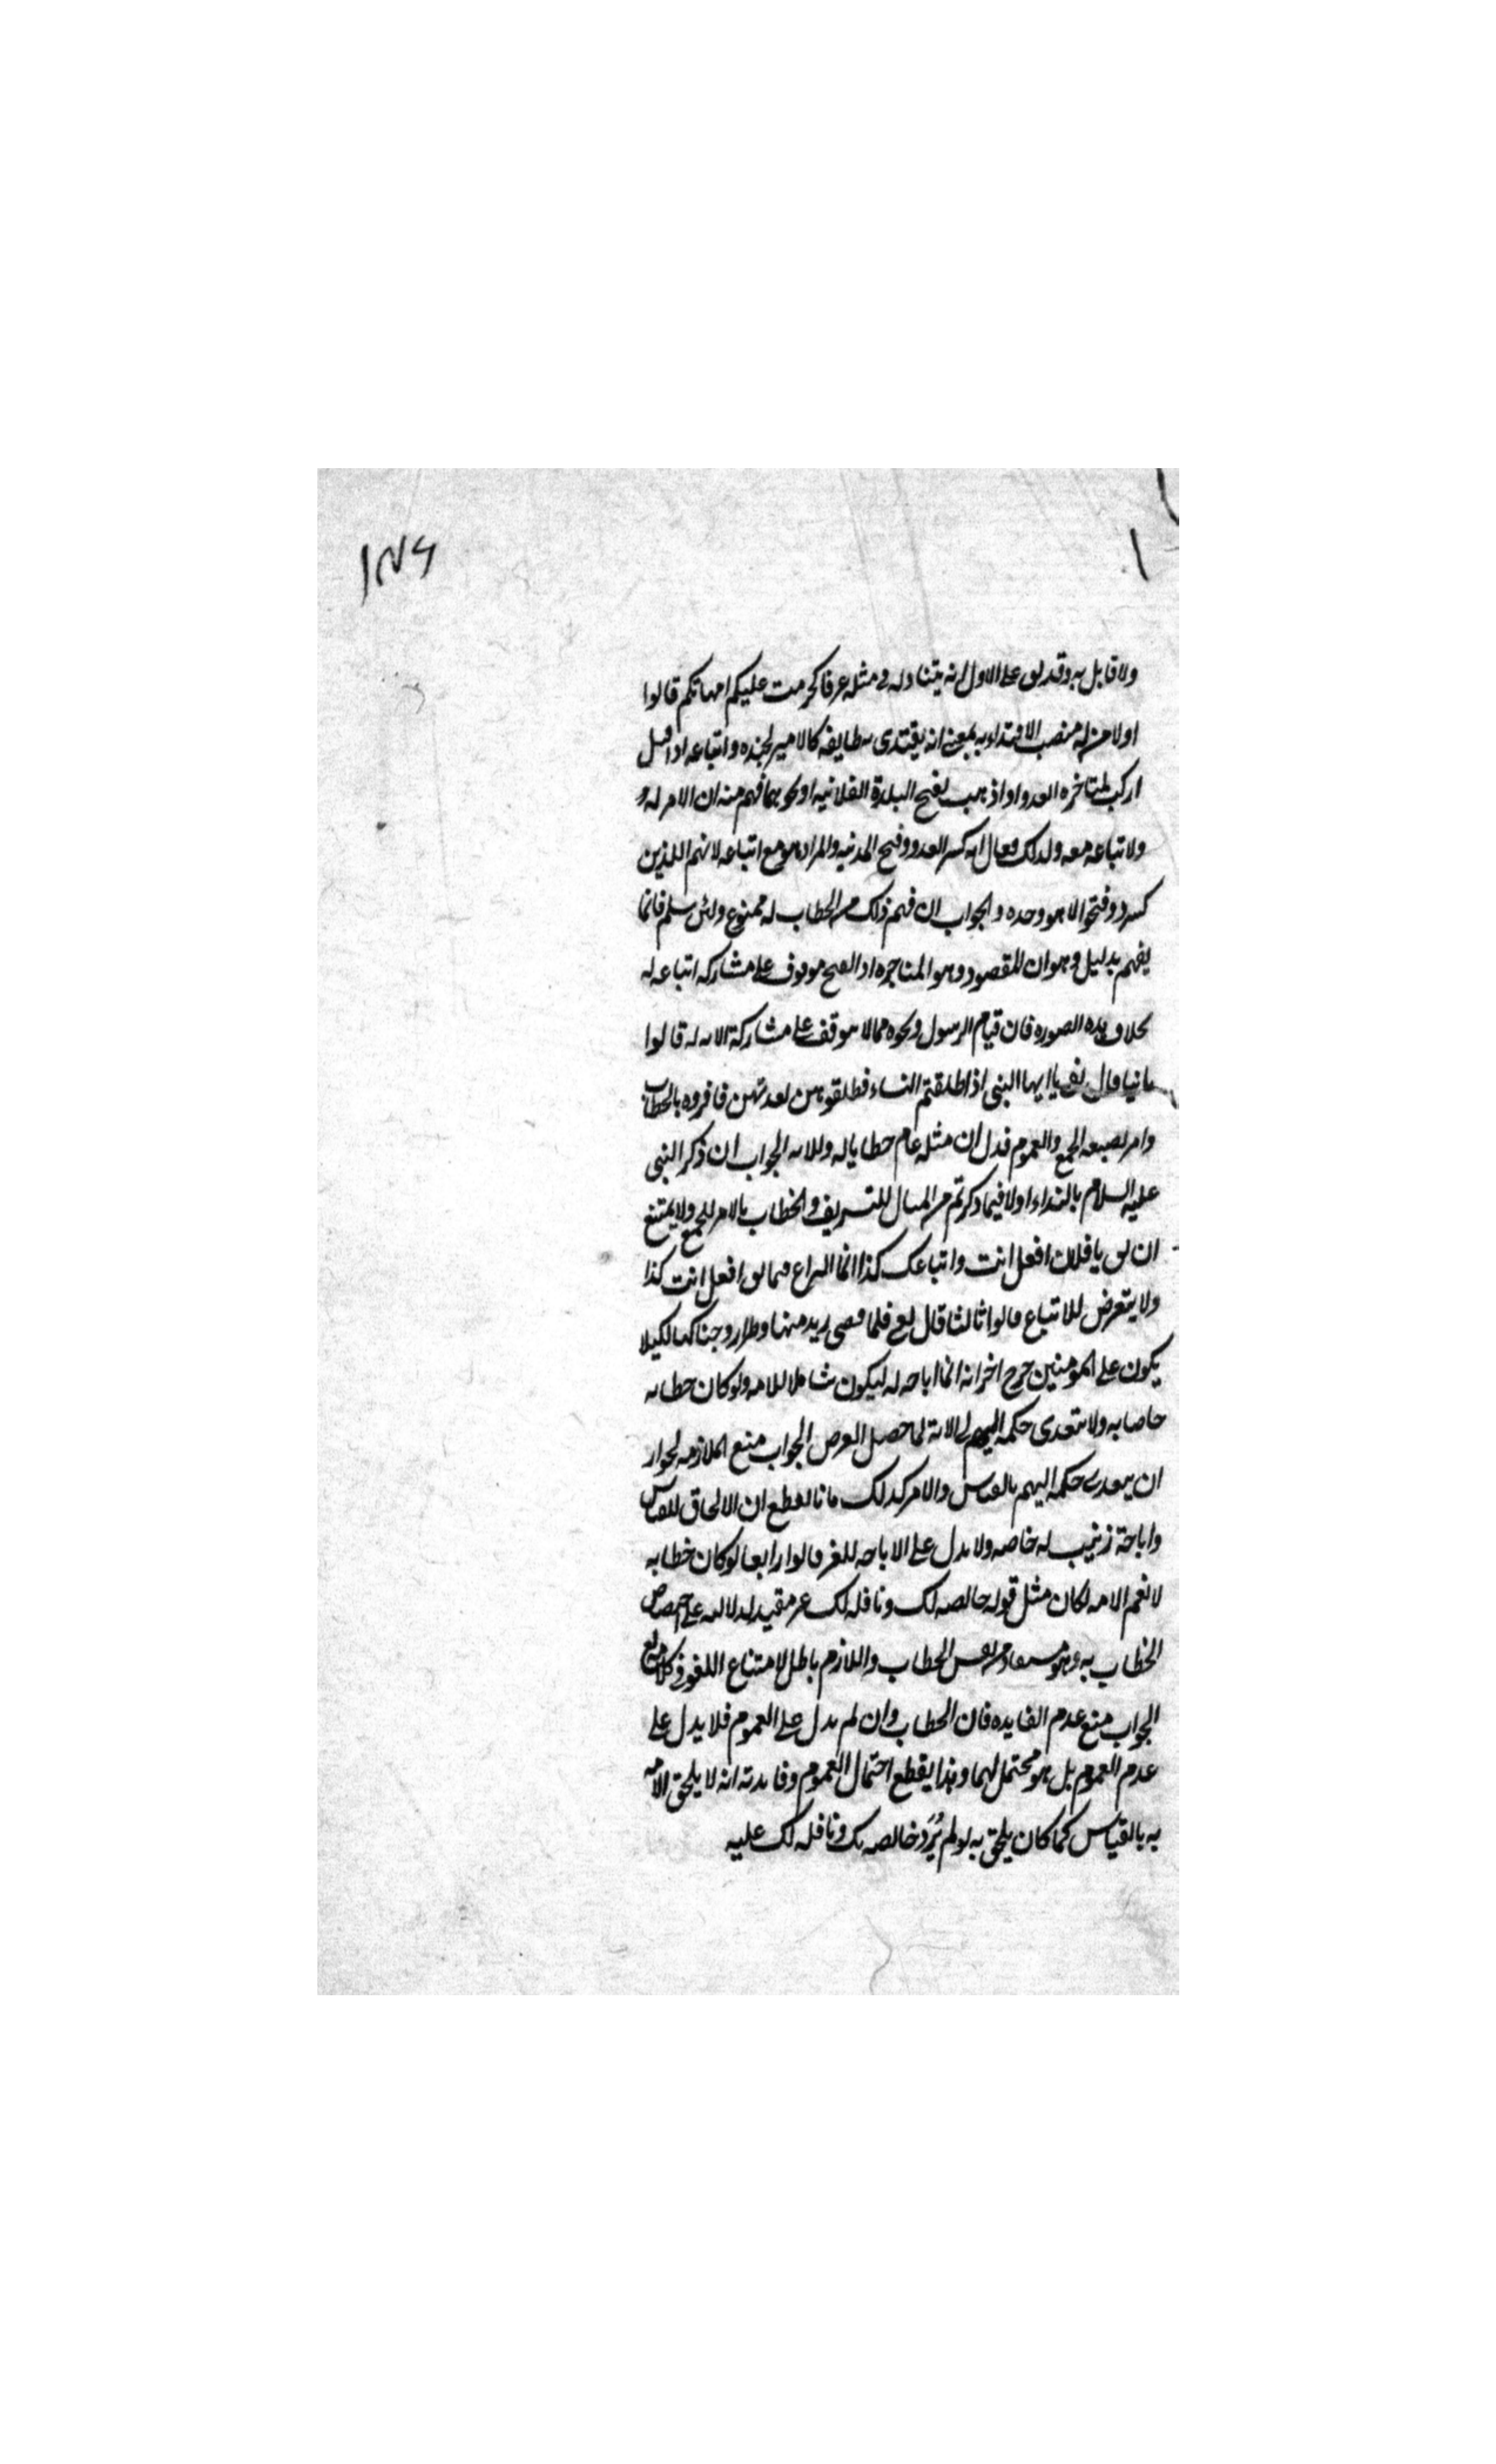 ۱۸۷۶
ولا قابل به وقد يق على الاول انه يتناوله فى مثله عرفا كحرمت عليكم امهاتكم قالوا
اولا من له منصب الاقتداء به بمعنى انه يقتدى به طايفه كالامير لجنده واتباعه اذا قيل
اركب لمناجزه العدو او اذهب لفتح البلدة الفلانيه او نحوهما فهم منه ان الامر له و
ولاتباعه معه ولذلك يقال انه كسر العدو وفتح المدنيه والمراد هو مع اتباعه لانهم اللذين
كسرو وفتحوا لا هو وحده والجواب ان فهم ذلك من الخطاب له ممنوع ولئن سلم فانما
يفهم بدليل وهو ان المقصود وهو المناجزه او الفتح موقوف على مشاركه اتباعه له
بخلاف هذه الصوره فان قيام الرسول ونحوه مما لا يتوقف على مشاركة الامه له قالوا
ثانيا قال تعالى يا ايها النبى اذا طلقتم النساء فطلقوهن لعدتهن فافرده بالخطاب
وامر بصيغه الجمع والعموم فدل ان مثله عام خطابا له وللامه الجواب ان ذكر النبى
عليه السلام بالنداء اولا فيما ذكرتم من المثال للتشريف والخطاب بالامر للجمع ولا يمتنع
ان يق يا فلان افعل انت واتباعك كذا انما النزاع فيما يق افعل انت كذا
ولا يتعرض للاتباع قالوا ثالثا قال تعالى فلما قضى زيد منها وطرا زوجناكها لكيلا
يكون على المومنين حرج اخبر انه انما اباحه له ليكون شاملا للامه ولو كان خطابه
خاصا به ولا يتعدى حكمه الى الامة لما حصل الغرض الجواب منع الملازمه لجواز
ان يتعدى حكمه اليهم بالقياس والامر كذلك فانا نقطع ان الالحاق للقياس
واباحة زينب له خاصه ولا يدل على الاباحه للغير قالوا رابعا لو كان خطابه
لا تعم الامه لكان مثل قوله خالصه لك ونافله لك غير مفيد لدلالته على اختصاص
الخطاب به وهو مستفاد من نفس الخطاب واللازم باطل لامتناع اللغو فى كلامه تعالى
الجواب منع عدم الفايده فان الخطاب وان لم يدل على العموم فلا يدل على
عدم العموم بل هو محتمل لهما وهذا يقطع احتمال العموم وفايدته انه لا يلحق الامه
به بالقياس كما كان يلحق به لو لم يُرَد خالصه لك ونافله لك عليه